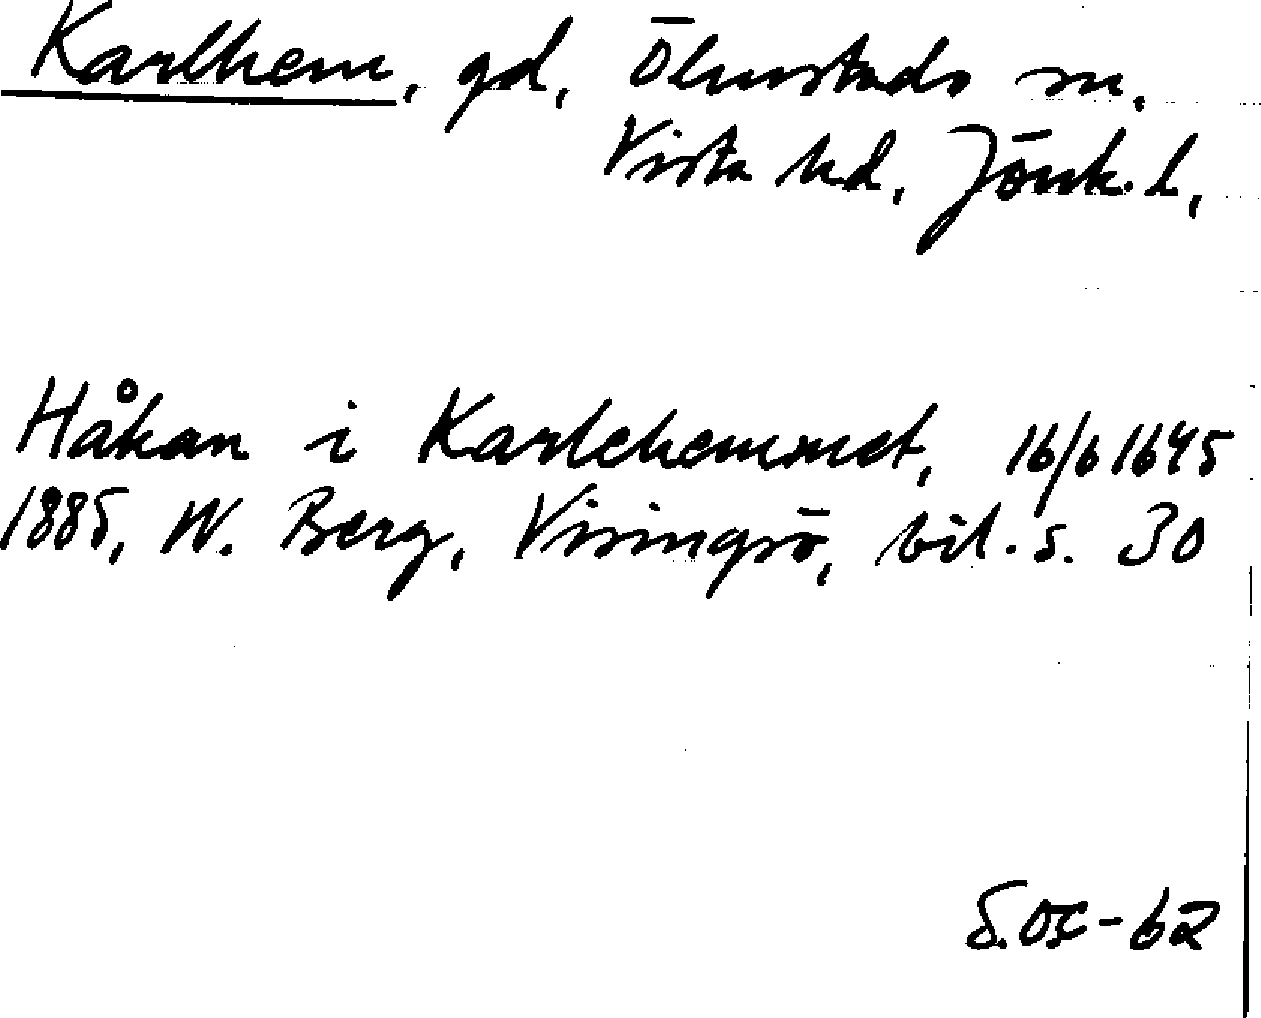 Karlhem, gd, Ölmstads sn.
Vista hd, Jönk. l,
Håkan i Karlehemmet, 16/6 1645
1885, W. Berg, Visingsö, bil. s. 30